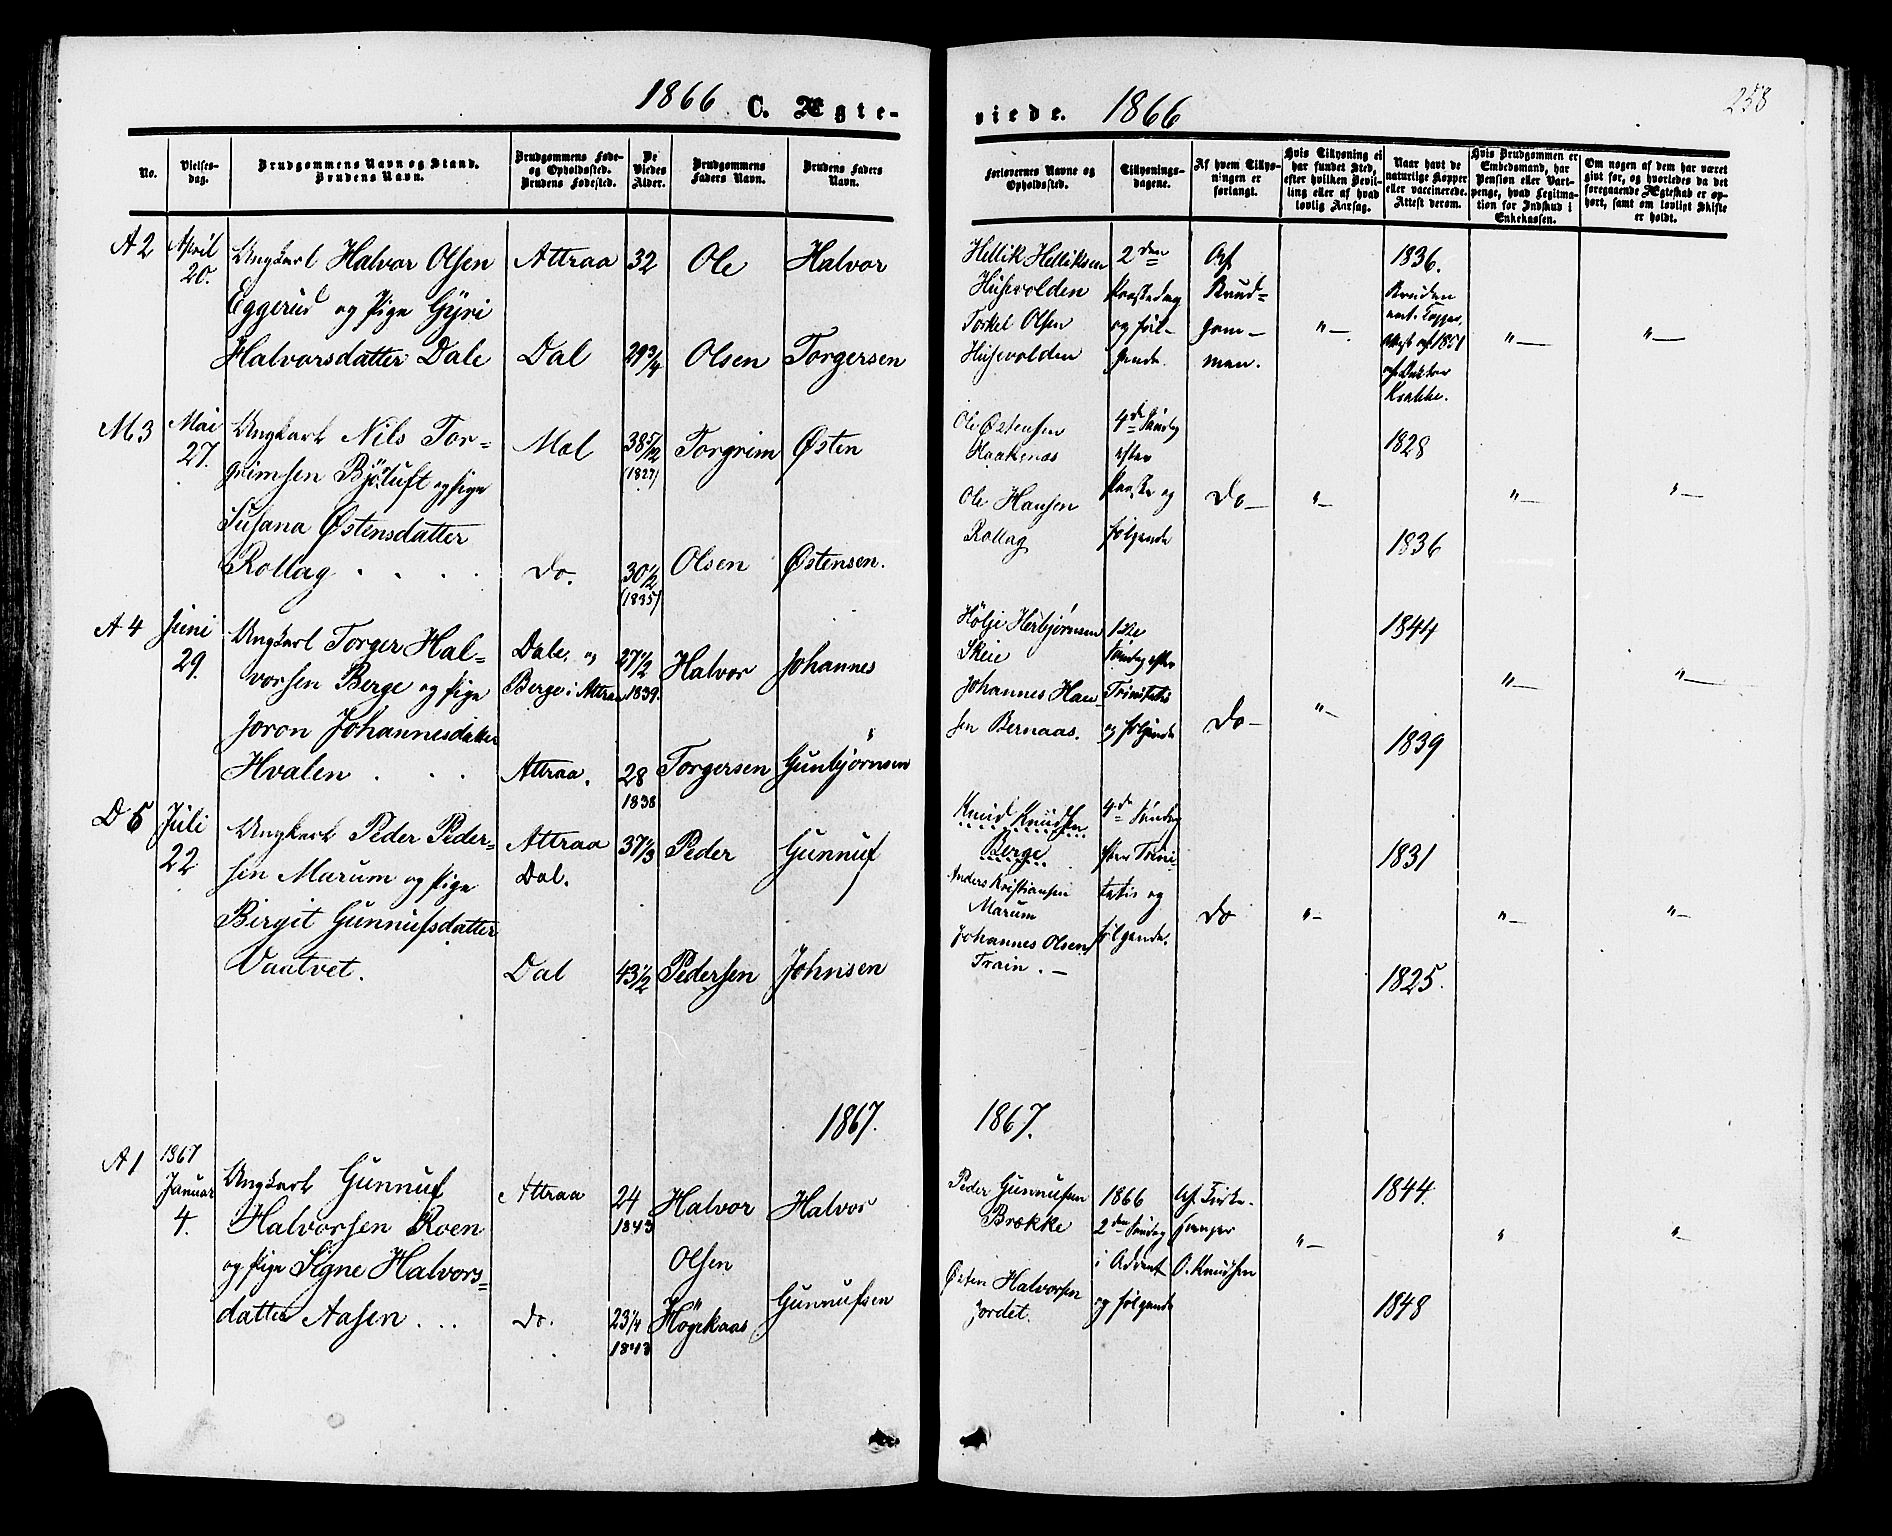 1866 C. Ægte-
viede. 1866
258
No.
Vielses-
dag.
Brudgommens Navn og Stand.
Brudens Navn.
Brudgommens Føde-
og Opholdssted.
Brudens Fødested.
De
Viedes
Alder.
Brudgommens
Faders Navn.
Brudens Faders
Navn.
Forlovernes Navne og
Opholdssted.
Tillysnings-
dagene.
Af hvem Tillys-
ningen er
forlangt.
Hvis Tillysning ei
har fundet Sted,
efter hvilken Bevil-
ling eller af hvad
lovlig Aarsag.
Naar havt de
naturlige Kopper
eller vaccinerede.
Attest derom.
Hvis Brudgommen er
Embedsmand, har
Pension eller Vart-
penge, hvad Legitima-
tion for Indskud i
Enkekassen.
Om nogen af dem har været
gift før, og hvorledes da det
foregaaende Ægteskab er op-
hørt, samt om lovligt Skifte
er holdt.
A 2
April
20.
Ungkarl Halvor Olsen
Eggerud og Pige Gyri
Halvorsdatter Dale
Attraa
Dal
32
29 3/4
Ole
Olsen
Halvor
Torgersen
Hellik Helliksen
Husevolden
Torkel Olsen
Husevolden
2den
Paaskedag
og føl-
gende.
Af
Brud-
gom-
men.
"—
1836.
Bruden
nat. Kopper,
Attest af 1851
af Doktor
Krabbe.
"—
"—
M 3
Mai
27.
Ungkarl Nils Tor-
grimsen Bjøluft og Pige
Susana Østensdatter
Rollag . . . .
Mal
Do.
38 5/12
(1827)
30 1/2
(1835)
Torgrim
Olsen
Østen
Østensen.
Ole Østensen
Haakenæs
Ole Hansen
Rollag
4de Søndag
efter
Paaske og
følgende
Do—
"—
1828
1836
"—
"—
A 4
Juni
29.
Ungkarl Torger Hal-
vorsen Berge og Pige
Joron Johannesdatter
Hvalen . . .
Dale, og
Berge i Attraa
Attraa.
27 1/2
1839.
28
1838
Halvor
Torgersen
Johannes
Gunbjørnsen
Hølje Herbjørnsen
Skeie
Johannes Han-
sen Bernaas.
1ste
Søndag efter
Trinitatis
og følgende
Do—
"—
1844
1839
"—
"—
D 5
Juli
22
Ungkarl Peder Peder-
sen Marum og Pige
Birgit Gunnufsdatter
Vaatvet.
Attraa
Dal.
Dal
37 1/3
43 1/2
Peder
Pedersen
Gunnuf
Johnsen
Knud Knudsen
Berge
Anders Kristiansen
Marum
Johannes Olsen
Train. —
4de Søndag
efter Trini-
tatis og
følgende.
Do
"—
1831
1825.
"—
"—
1867.
1867.
A 1
1867
Januar
4.
Ungkarl Gunnuf
Halvorsen Roen
og Pige Signe Halvors-
datter Aasen . . .
Attraa
Do.
24
1843
23 1/4
1843
Halvor
Olsen
Høgekaas
Halvor
Gunnufsen
Peder Gunnufsen
Brække
Østen Halvorsen
Jordet.
1866
2den Søndag
i Advent
og følgende
Af Kirke-
sanger
O. Knudsen
"—
1844.
1848
"
"—